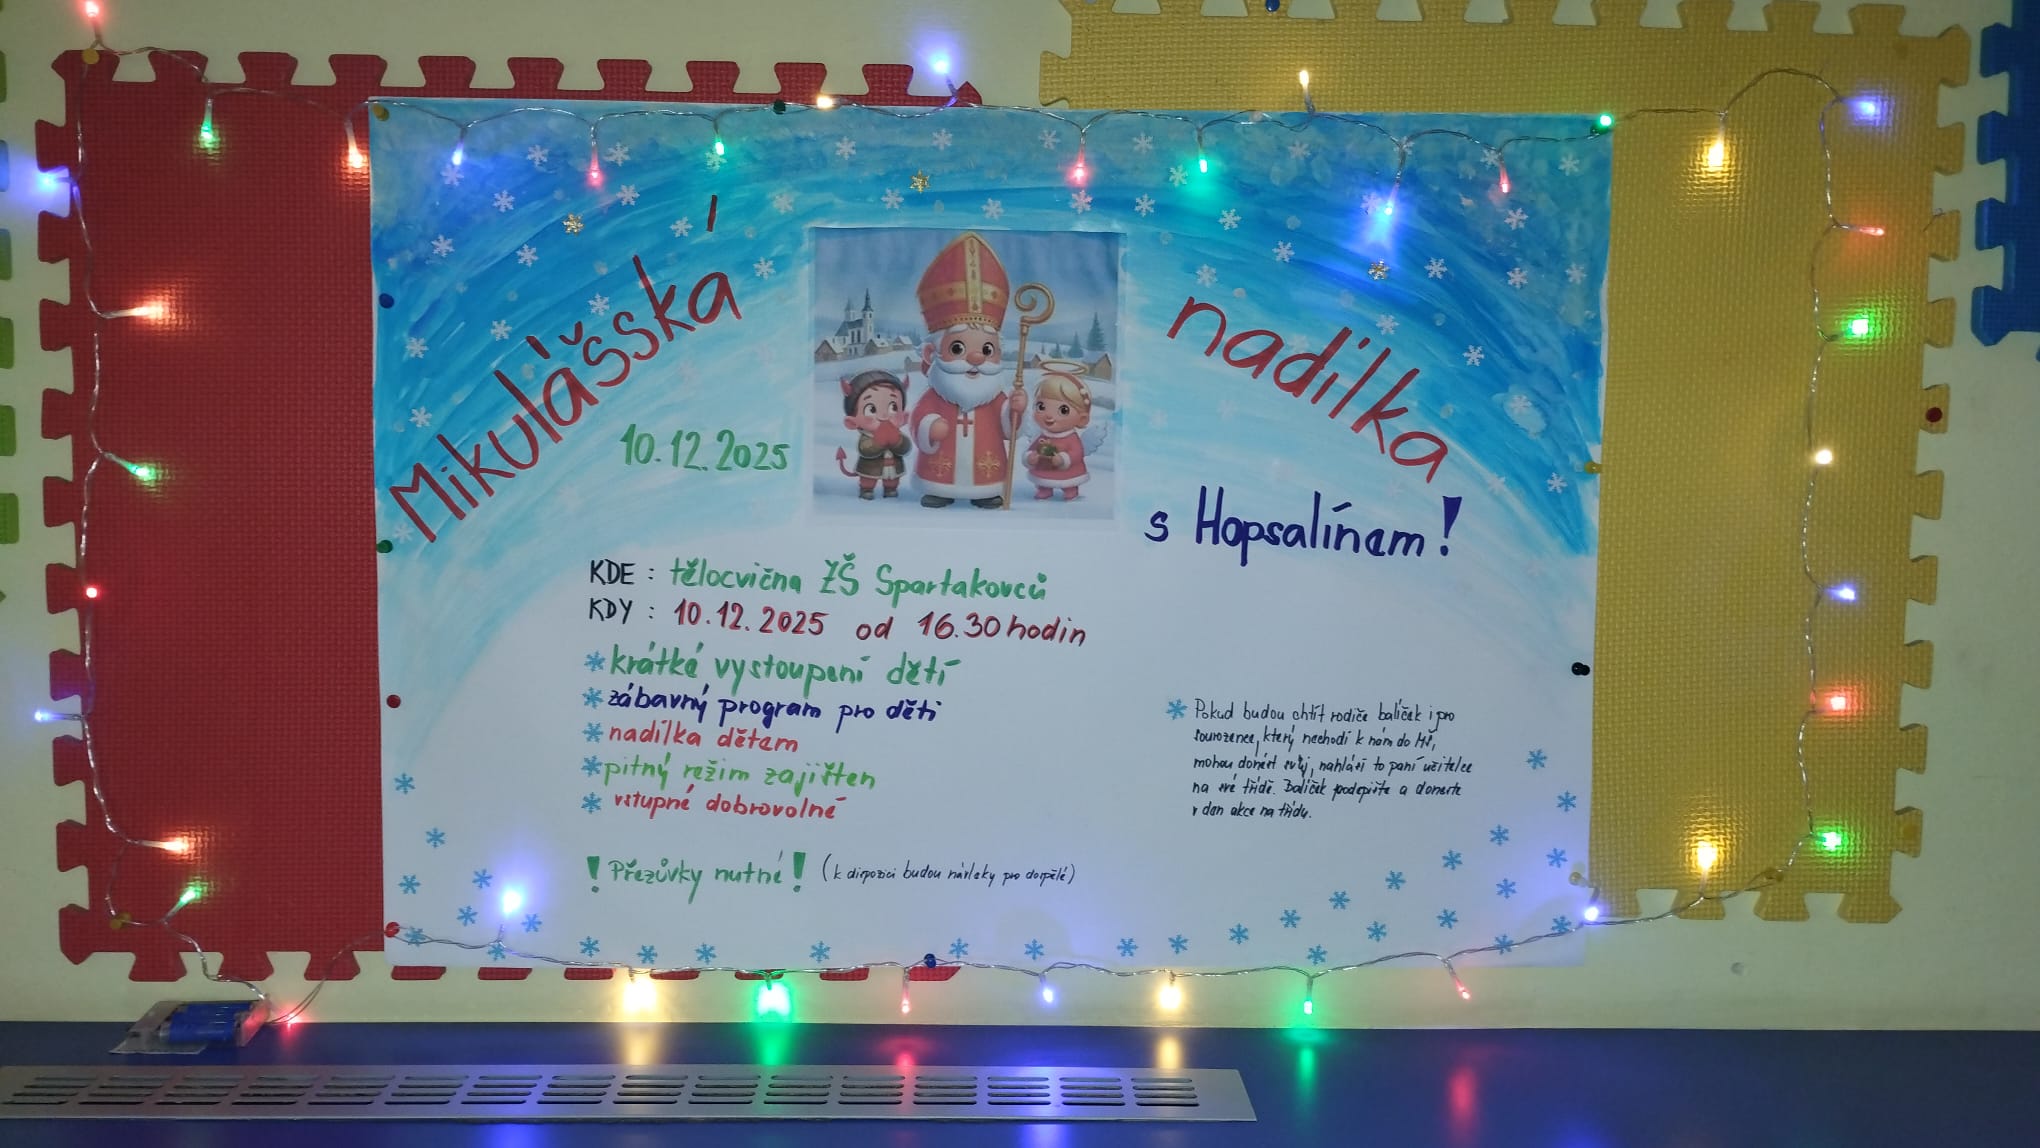 Mikulášská nadílka
10.12.2025
s Hopsalínem!
KDE : tělocvična ZŠ Spartakovců
KDY : 10.12.2025 od 16.30 hodin
krátké vystoupení dětí
zábavný program pro děti
nadílka dětem
pitný režim zajištěn
vstupné dobrovolné
! Přezůvky nutné! (k dispozici budou návleky pro dospělé)
Pokud budou chtít rodiče balíček i pro
sourozence, který nechodí k nám do MŠ,
mohou donést svůj, nahlásí to paní učitelce
na své třídě. Balíček podepište a doneste
v den akce na třídu.